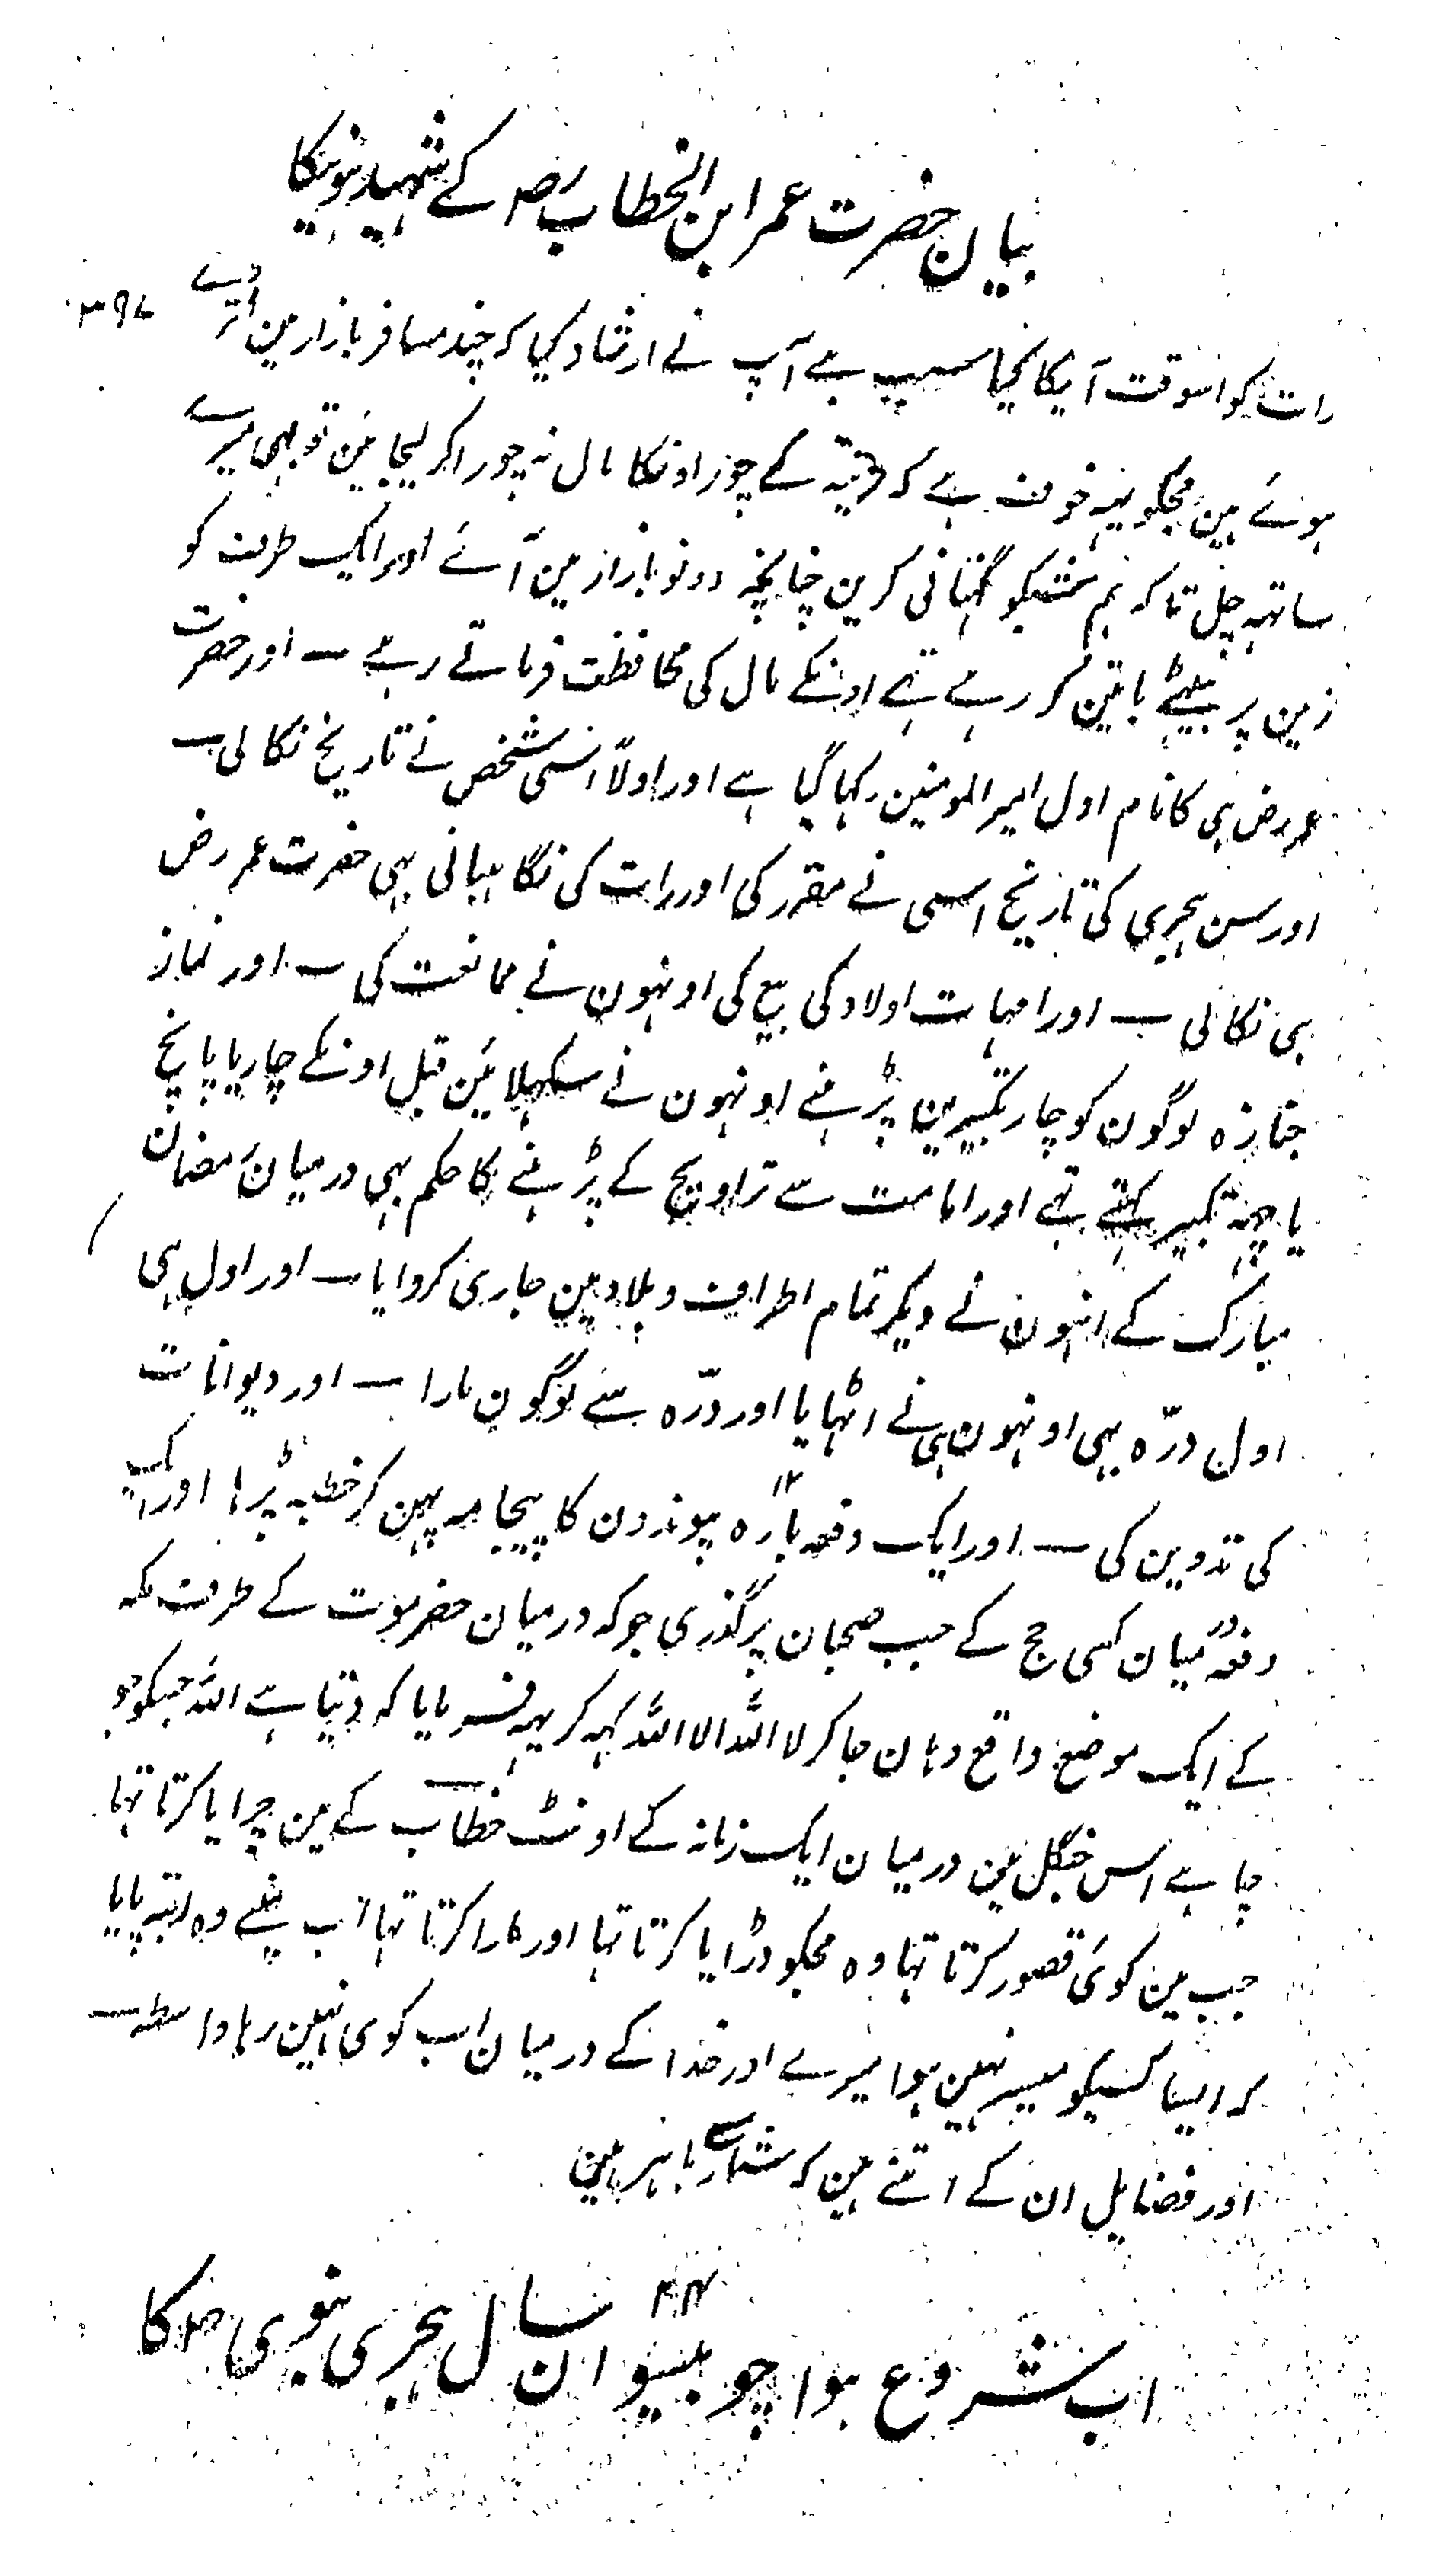 بیان حضرت عمر ابن الخطاب رضہ کے شہید ہونیکا
۳۹۷
رات کو اسوقت آپکا کیا سبب ہے آپ نے ارشاد کیا کہ چند مسافر بازار مین اترے
ہوئے ہین مجکو یہہ خوف ہے کہ مدینہ کے چور اونکا مال نہ چورا کر لیجائین تو بہی میرے
ساتہہ چل تاکہ ہم شبکو نگہبانی کرین چنانچہ دونو بازار مین آئے اور ایک طرف کو
زمین پر بیٹہے باتین کر رہے تہے اونکے مال کی محافظت فرماتے رہے ۔ اور حضرت
عمر رض ہی کا نام اول امیر المومنین رکہا گیا ہے اور اولاً اسی شخص نے تاریخ نکالی ۔
اور سن ہجری کی تاریخ اسی نے مقرر کی اور رات کی نگاہبانی بہی حضرت عمر رض
ہی نکالی ۔ اور امہات اولاد کی بیع کی اونہون نے ممانعت کی ۔ اور نماز
جنازہ لوگون کو چار تکبیرین پڑہنے اونہون نے سکہلائین قبل اونکے چار یا پانچ
یا چہہ تکبیر کہتے تہے اور امامت سے تراویح کے پڑہنے کا حکم بہی درمیان رمضان
مبارک کے انہون نے دیگر تمام اطراف و بلاد مین جاری کروایا ۔ اور اول ہی
اول درّہ بہی اونہون ہی نے اٹہایا اور درّہ سے لوگون مارا ۔ اور دیوانات
کی تدوین کی ۔ اور ایک دفعہ بارہ ۱۲ پیوندون کا پیجامہ پہن کر خطبہ پڑہا اور ایک
دفعہ درمیان کسی حج کے جب ضجنان پر گذری جو کہ درمیان حضرموت کے طرف مکہ
کے ایک موضع واقع وہان جا کر لا اللہ الا اللہ کہہ کر یہہ فرمایا کہ دیتا ہے اللہ جسکو جو
چاہے اس جنگل مین درمیان ایک زمانہ کے اونٹ خطاب کے مین چرایا کرتا تہا
جب مین کوئی قصور کرتا تہا وہ مجکو ڈرایا کرتا تہا اور مارا کرتا تہا اب مینے وہ رتبہ پایا
کہ ایسا کسیکو میسر نہین ہوا میرے اور خدا کے درمیان اب کوئی نہین رہا واسطہ ۔
اور فضایل ان کے اتنے ہین کہ شمار سے باہر ہین
اب شروع ہوا چوبیسوان ۲۴ سال ہجری نبوی صلعم کا